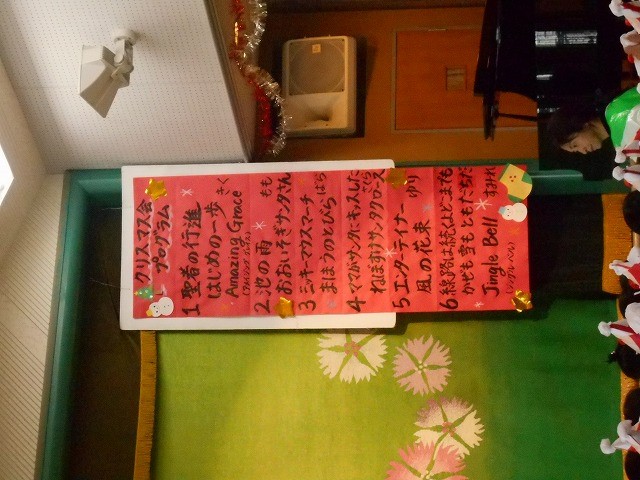 クリスマス会
プログラム
1 聖者の行進 きく
はじめの一歩
Amazing Grace
(アメイジング グレイス)
2 池の雨 もも
おおいそぎサンタさん
3 ミッキーマウスマーチ
まほうのとびら ばら
4 ママがサンタにキッスした
ねぼすけサンタクロース さくら
5 エンターテイナー ゆり
風の花束
6 線路は続くよどこまでも
かぜも雪もともだちだ
Jingle Bell すみれ
(ジングルベル)